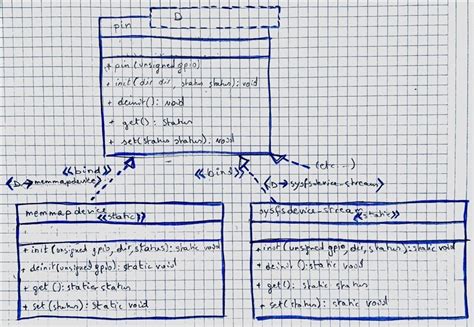 D
pin
+ pin(unsigned gpio)
+ init(dir dir, status status): void
+ deinit(): void
+ get(): status
+ set(status status): void
<<bind>>
<D→memmapdevice>
<<bind>>
(etc...)
<D→sysfsdevice-stream>
memmapdevice
<<static>>
+ init(unsigned gpio, dir, status): static void
+ deinit(unsigned gpio): static void
+ get(): static status
+ set(status): static void
sysfsdevice-stream
<<static>>
+ init(unsigned gpio, dir, status): static void
+ deinit(): static void
+ get(): static status
+ set(status): static void